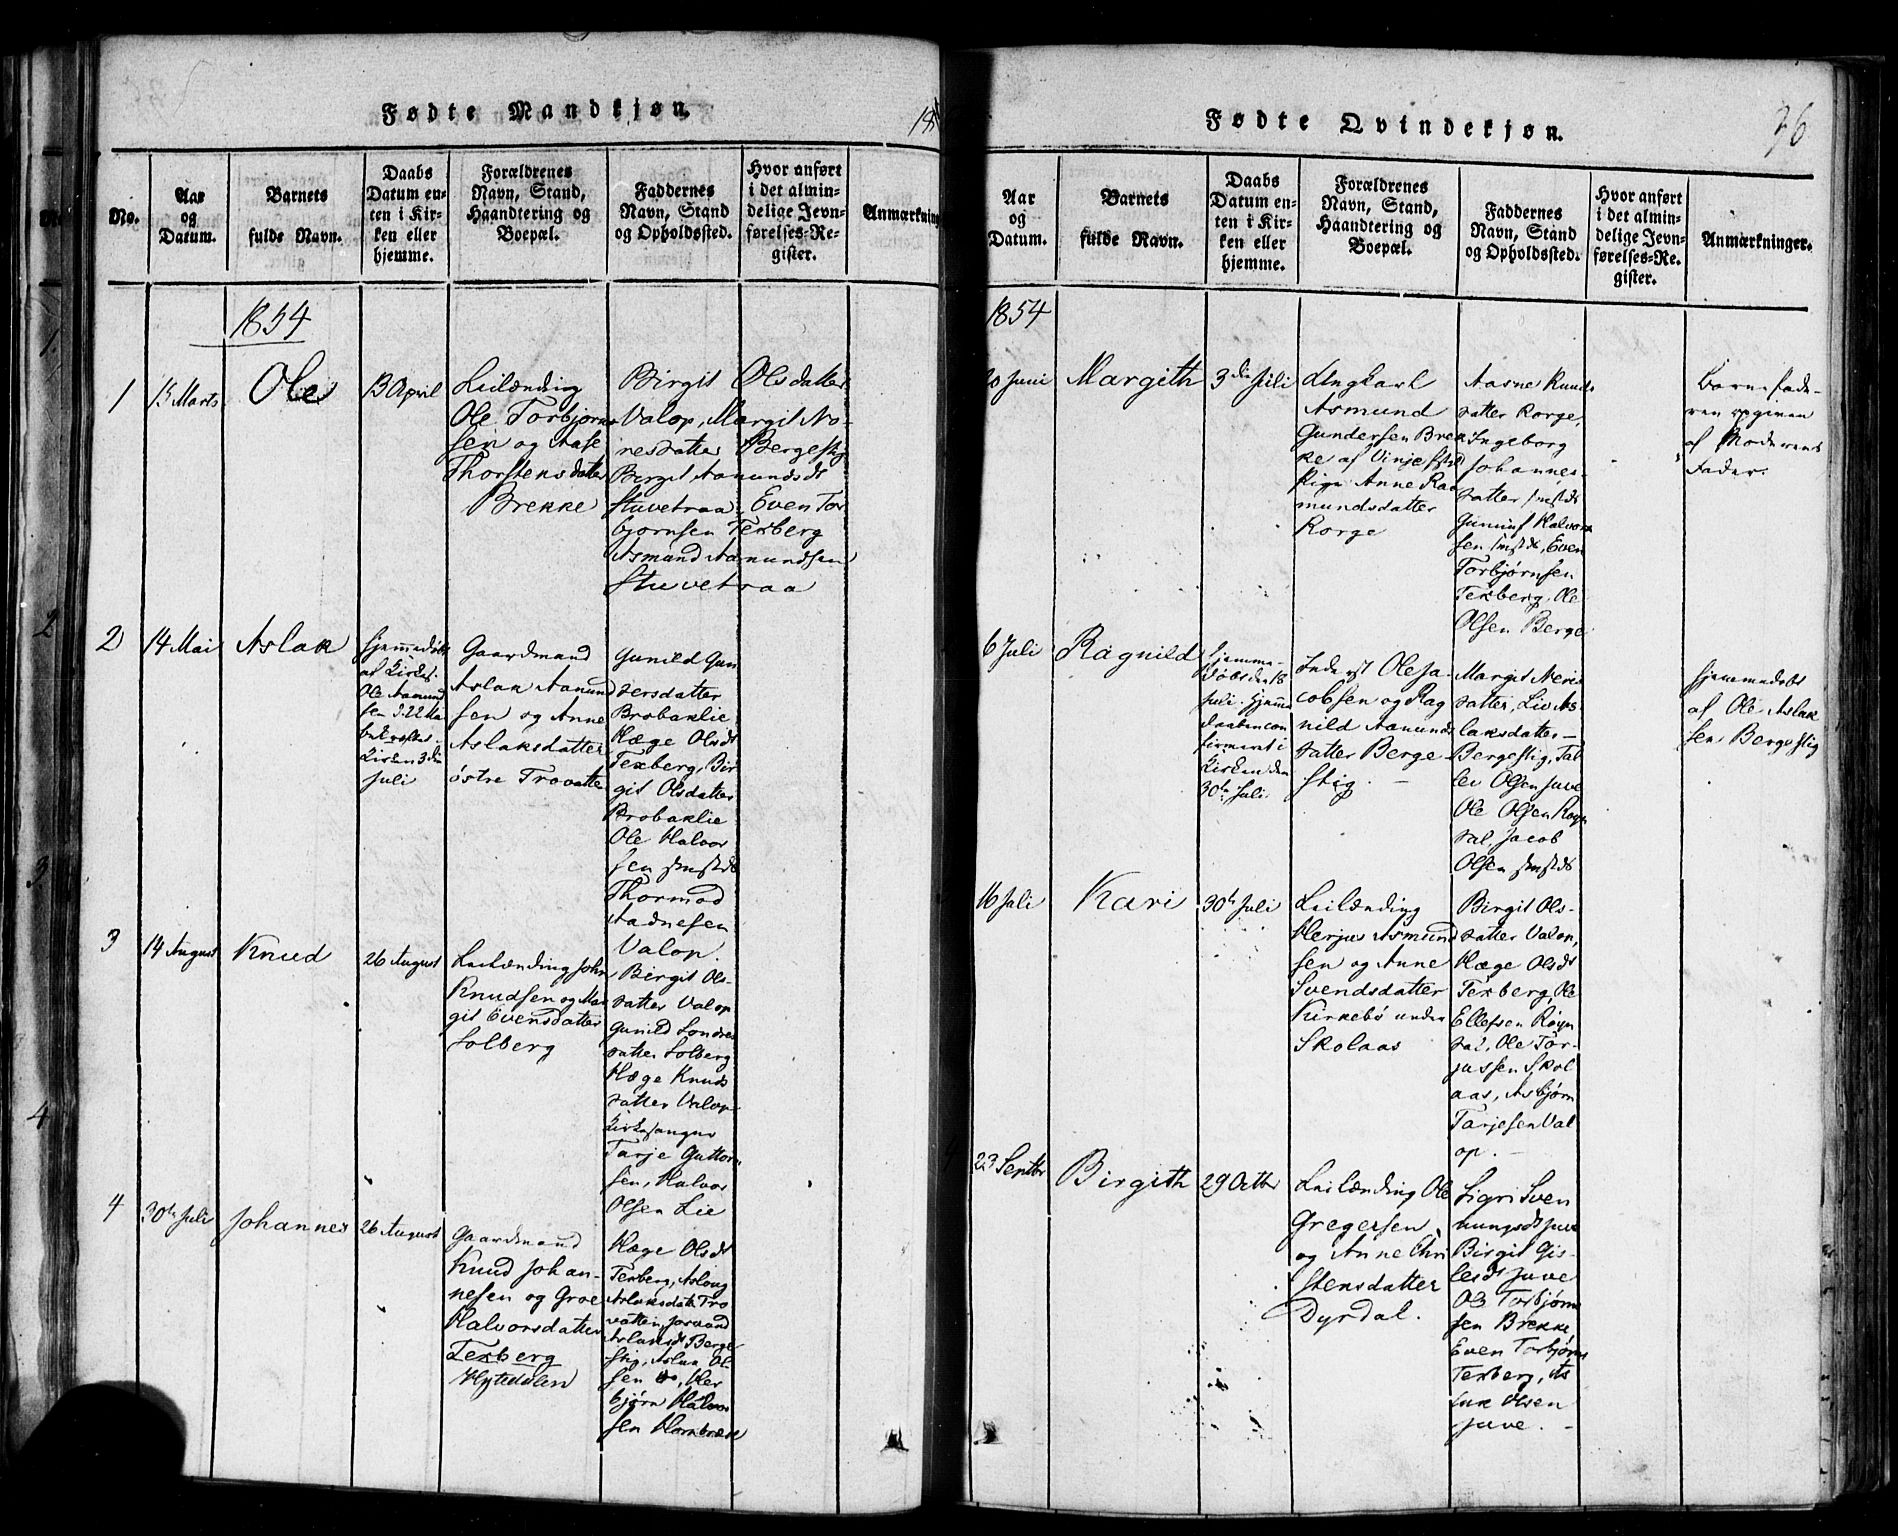 Fødte Mandkjøn.
18
No.
Aar
og
Datum.
Barnets
fulde Navn.
Daabs
Datum en-
ten i Kir-
ken eller
hjemme.
Forældrenes
Navn, Stand,
Haandtering og
Boepæl.
Faddernes
Navn, Stand
og Opholdssted.
Hvor anført
i det almin-
delige Jevn-
førelses-Re-
gister.
Anmærkning
1854
1
15 Marts
Ole
13 April
Leilænding
Ole Torbjørn
sen og Aase
Thorstensdatter
Brekke
Birgit Olsdatter
Valop, Margit No-
resdatter Bergestig
Birgit Aamundsdt
Stuvetraa, Even Tor
bjørnsen Texberg
Asmund Aamundsen
Stuvetraa
2
14 Mai
Aslak
hjemmedøbt
af Kirkes.
Ole Aamund
sen d. 22 Mai
bekræftet
Kirken 3die
Juli
Gaardmand
Aslak Aamund
sen og Anne
Aslaksdatter
østre Trovatten
Gunild Gun
dersdatter
Brobaklie
Hæge Olsdt
Texberg, Bir
git Olsdatter
Brobaklie
Ole Halvor
sen smstds
Thormod
Aadnesen
Valop.
3
14 August
Knud
26 August
Leilænding John
Knudsen og Mar
git Evensdatter
Solberg
Birgit Ols-
datter Valop
Gunild Sondre
datter Solberg
Hæge Knuds
datter Valop
Kirkesanger
Tarje Guttorm
sen, Halvor
Olsen Lie
4
30te Juli
Johannes
26 August
Gaardmand
Knud Johan-
nesen og Groe
Halvorsdatter
Texberg
Hytedalen
Hæge Olsdt
Texberg, Aslaug
Aslaksdatr Tro
vatten, Jorand
Aslaksdt Berge
stig, Aslak Ol
sen do, Her
bjørn Halvor
sen Hornbrække
Fødte Qvindekjøn.
36
Aar
og
Datum.
Barnets
fulde Navn.
Daabs
Datum en-
ten i Kir-
ken eller
hjemme.
Forældrenes
Navn, Stand,
Haandtering og
Boepæl.
Faddernes
Navn, Stand
og Opholdssted.
Hvor anført
i det almin-
delige Jevn-
førelses-Re-
gister.
Anmærkninger.
1854
20 Juni
Margith
3die Juli
Ungkarl
Asmund
Gundersen Brek
ke af Vinje Pst
Pige Anne Raa
mundsdatter
Rorge
Aasne Knuds
datter Rorge,
Ingeborg
Johannes-
datter smstds
Gunuf Halvor
sen smstds, Even
Torbjørnsen
Texberg, Ole
Olsen Berge
Barnefade-
ren opgiven
af Moderens
Fader.
6 Juli
Ragnild
hjemme-
døbt den 16
Juli. Hjemme
daaben con
firmert i
Kirken den
30te Juli
Inderst Ole Ja
cobsen og Rag
nild Aamunds
datter Berge-
stig.
Margit Neris
datter, Liv As-
laksdatter
Bergestig, Tal
lev Olsen Juve
Ole Olsen Røyn
dal, Jacob
Olsen smstds
hjemmedøbt
af Ole Aslak
sen Bergestig
16 Juli
Kari
30te Juli
Leilænding
Herjus Asmund
sen og Anne
Svendsdatter
Kirkebø under
Skolaas
Birgit Ols-
datter Valop,
Hæge Olsdt
Texberg, Ole
Ellefsen Røyn
dal, Ole Tor-
jussen Skol
aas, Asbjørn
Tarjesen Val
op.
23 Septbr
Birgith
29 Octbr
Leilænding Ole
Gregersen
og Anne Chri
stensdatter
Dyrdal.
Sigri Sven
nungsdt Juve
Birgit Gis-
lesdt Juve
Ole Torbjørn
sen Brekke
Even Torbjørns
Texberg, As
lak Olsen
Juve.